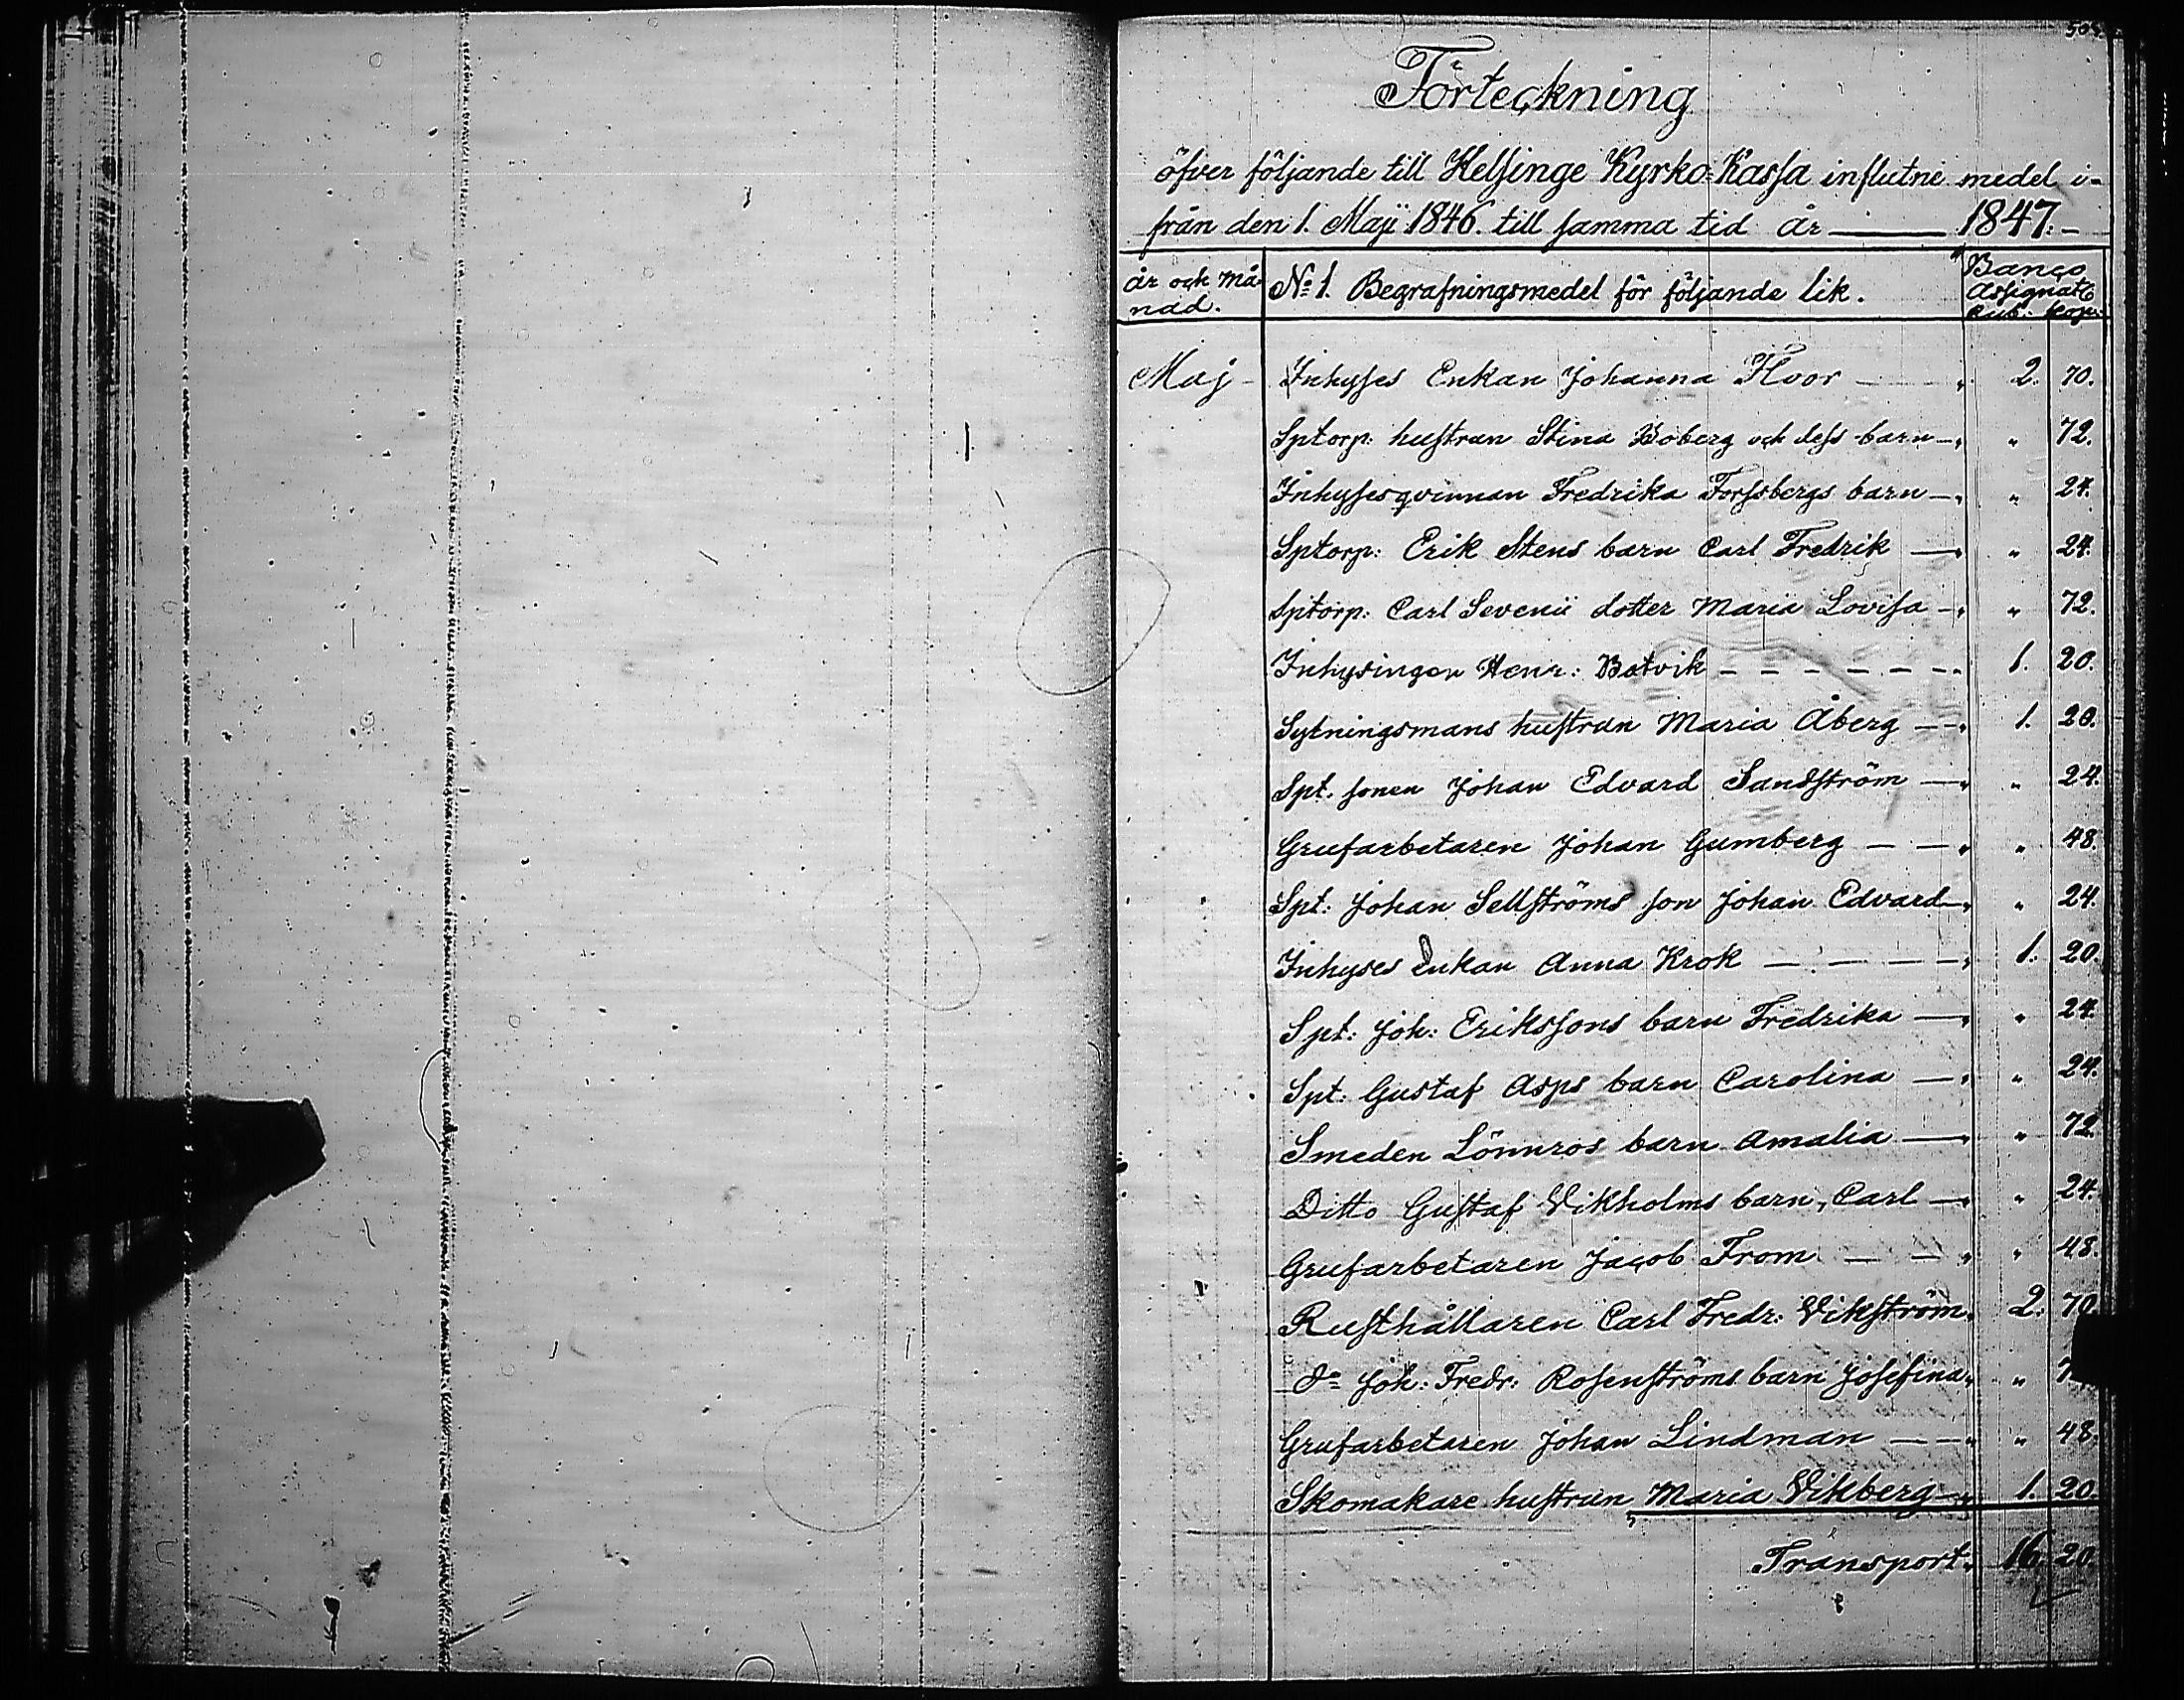 Förteckning
öfver följande till Helsinge Kyrko-Kassa influtne medel i-
från den 1. Maji 1846. till samma tid år — 1847.-
år och Må- No 1. Begrafningsmedel för följande lik. Banco Assignat
nad. Rub. Kop.
Maj - Inhyses Enkan Johanna Hvor — 2. 70.
Sptorp: hustrun Stina Boberg och dess barn - " 72.
Inhysesqvinnan Fredrika Forssbergs barn - " 24.
Sptorp: Erik Stens barn Carl Fredrik — " 24.
Sptorp: Carl Sevenii dotter Maria Lovisa - " 72.
Inhysingen Henr: Batvik - - - - - - 1. 20.
Sytningsmans hustrun Maria Åberg — 1. 20.
Spt. sonen Johan Edvard Sandström — " 24.
Grufarbetaren Johan Gumberg — — " 48.
Spt: Johan Sellströms son Johan Edvard - " 24.
Inhyses Enkan Anna Krok — — — — 1. 20.
Spt: Joh: Erikssons barn Fredrika — " 24.
Spt: Gustaf Asps barn Carolina — " 24.
Smeden Lönnros barn Amalia — " 72.
Ditto Gustaf Vikholms barn, Carl — " 24.
Grufarbetaren Jacob From — — " 48.
Rusthållaren Carl Fredr: Vikström. 2. 70.
do Joh: Fredr: Rosenströms barn Josefina " 7
Grufarbetaren Johan Lindman — — " 48.
Skomakare hustrun Maria Vikberg - 1. 20.
Transport. 16. 20.